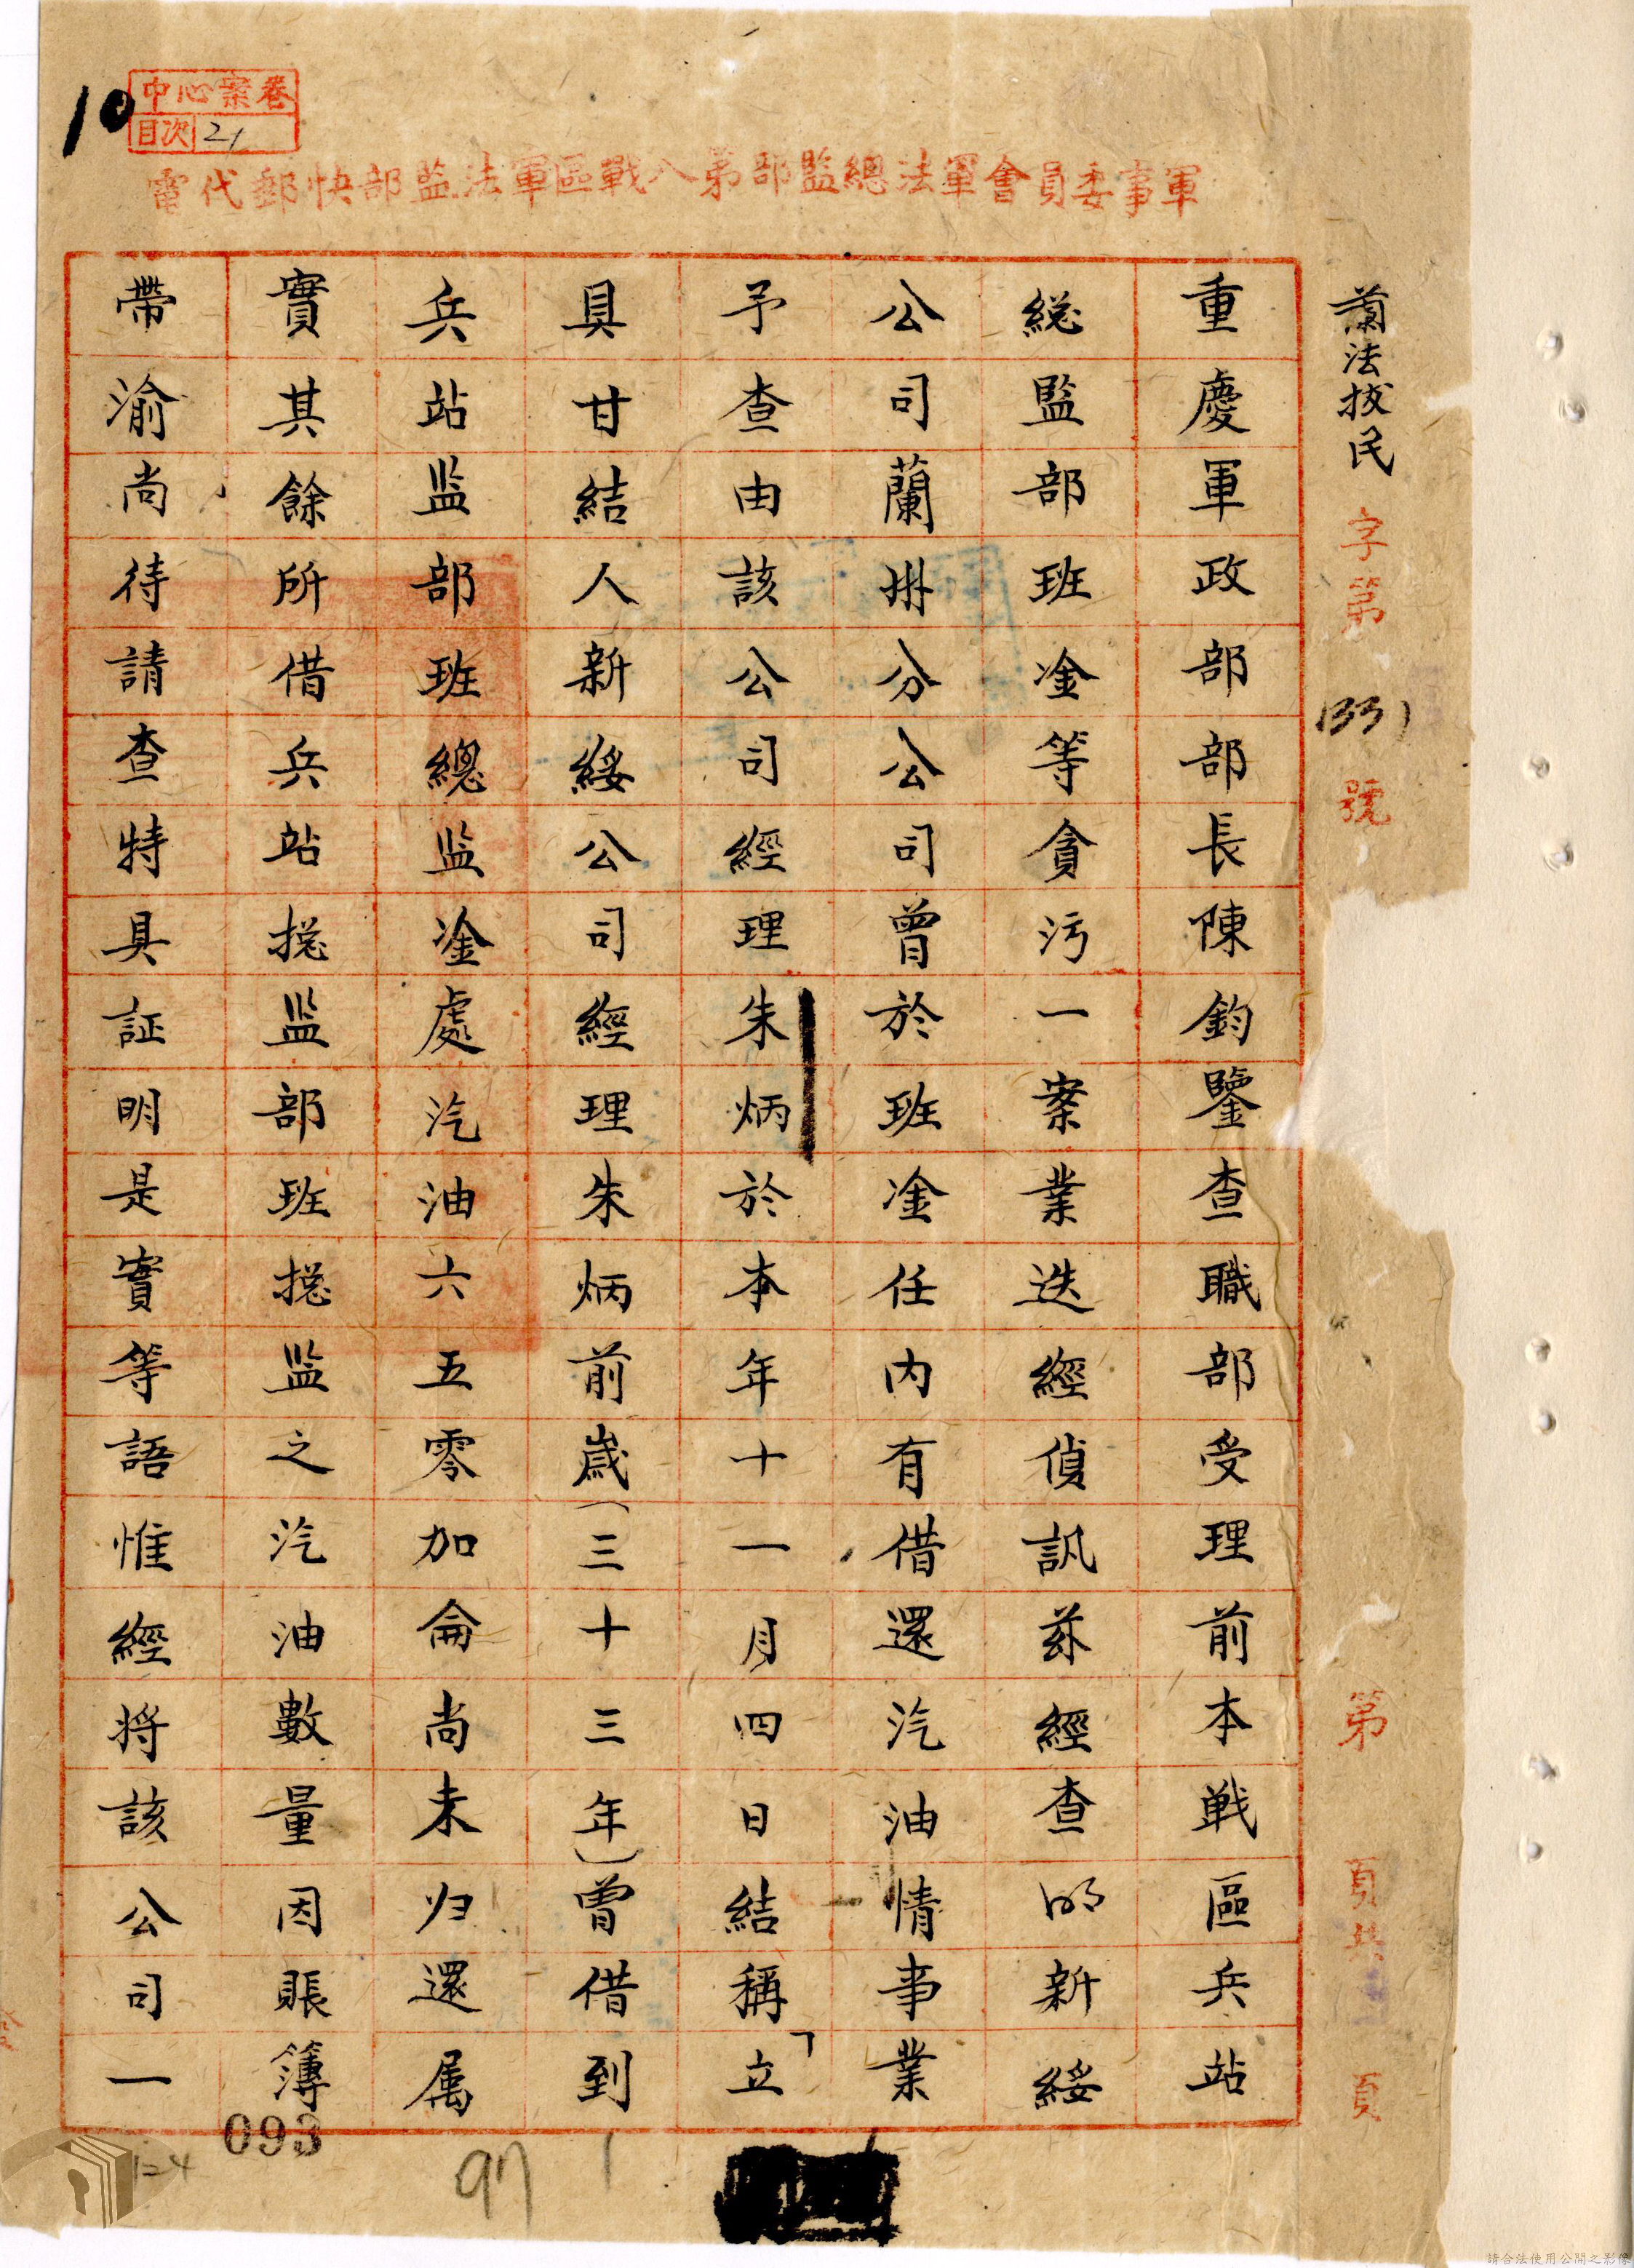 10
中心案卷
目次 21
軍事委員會軍法總監部第八戰區軍法監部快郵代電
蘭法拔民字第1331號 第 頁共 頁
重慶軍政部部長陳鈞鑒查職部受理前本戰區兵站
総監部班淦等貪污一案業迭經偵訊茲經查明新綏
公司蘭州分公司曾於班淦任內有借還汽油情事業
予查由該公司經理朱炳於本年十一月四日結稱「立
具甘結人新綏公司經理朱炳前歲(三十三年)曾借到
兵站监部班總监淦處汽油六五零加侖尚未归還属
實其餘所借兵站搃监部班搃监之汽油數量因賬簿
帶渝尚待請查特具証明是實等語惟經将該公司一
093
97
124
請合法使用公開之影像